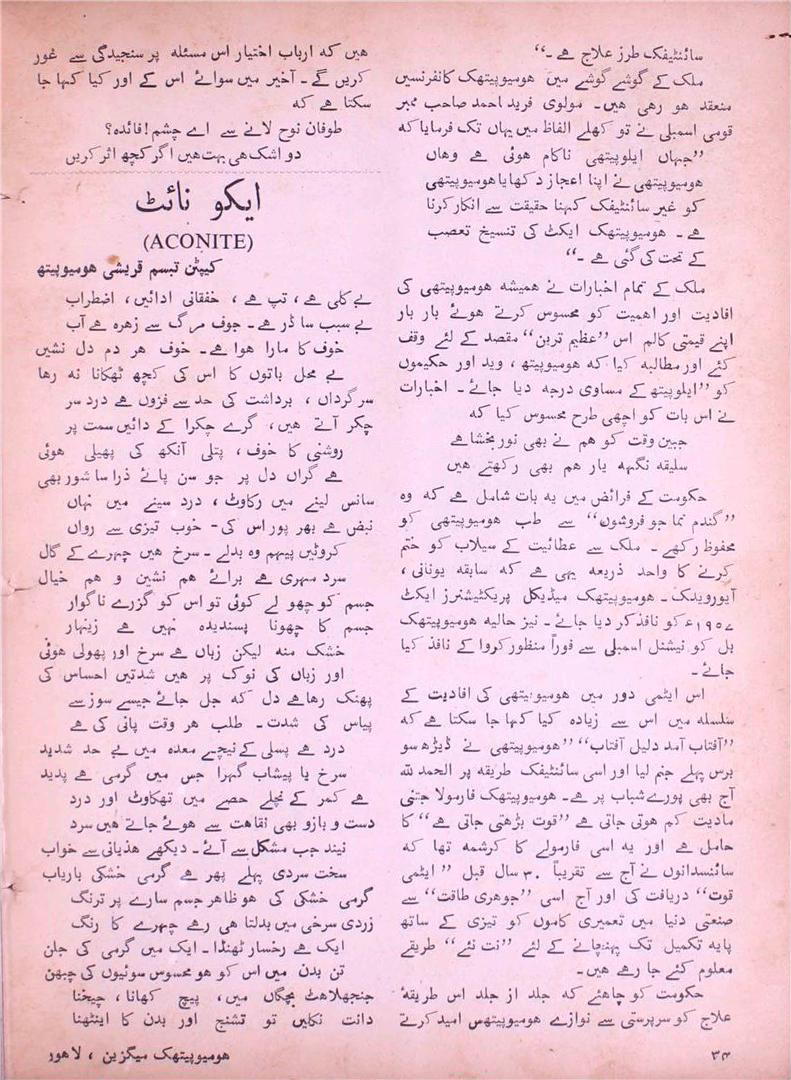 سائنٹیفک طرز علاج ہے۔‘‘
ملک کے گوشے گوشے میں ہومیوپیتھک کانفرنسیں
منعقد ہو رہی ہیں۔ مولوی فرید احمد صاحب ممبر
قومی اسمبلی نے تو کھلے الفاظ میں یہاں تک فرمایا کہ
’’جہاں ایلوپیتھی ناکام ہوئی ہے وہاں
ہومیوپیتھی نے اپنا اعجاز دکھایا ہومیوپیتھی
کو غیر سائنٹیفک کہنا حقیقت سے انکار کرنا
ہے۔ ہومیوپیتھک ایکٹ کی تنسیخ تعصب
کے تحت کی گئی ہے۔‘‘
ملک کے تمام اخبارات نے ہمیشہ ہومیوپیتھی کی
افادیت اور اہمیت کو محسوس کرتے ہوئے بار بار
اپنے قیمتی کالم اس ’’عظیم ترین‘‘ مقصد کے لئے وقف
کئے اور مطالبہ کیا کہ ہومیوپیتھ ، وید اور حکیموں
کو ’’ایلوپیتھ کے مساوی درجہ دیا جائے۔ اخبارات
نے اس بات کو اچھی طرح محسوس کیا کہ
جبین وقت کو ہم نے بھی نور بخشا ہے
سلیقہ نگہہ یار ہم بھی رکھتے ہیں
حکومت کے فرائض میں یہ بات شامل ہے کہ وہ
’’گندم نما جو فروشوں‘‘ سے طب ہومیوپیتھی کو
محفوظ رکھے۔ ملک سے عطائیت کے سیلاب کو ختم
کرنے کا واحد ذریعہ یہی ہے کہ سابقہ یونانی ،
آیورویدک۔ ہومیوپیتھک میڈیکل پریکٹیشنرز ایکٹ
۱۹۵۷ء کو نافذ کر دیا جائے۔ نیز حالیہ ہومیوپیتھک
بل کو نیشنل اسمبلی سے فوراً منظور کروا کے نافذ کیا
جائے۔
اس ایٹمی دور میں ہومیوپیتھی کی افادیت کے
سلسلہ میں اس سے زیادہ کیا کہا جا سکتا ہے کہ
’’آفتاب آمد دلیل آفتاب‘‘ ’’ہومیوپیتھی نے ڈیڑھ سو
برس پہلے جنم لیا اور اسی سائنٹیفک طریقہ پر الحمد للہ
آج بھی پورے شباب پر ہے۔ ہومیوپیتھک فارمولا جتنی
مادیت کم ہوتی جاتی ہے ’’قوت بڑھتی جاتی ہے‘‘ کا
حامل ہے اور یہ اسی فارمولے کا کرشمہ تھا کہ
سائنسدانوں نے آج سے تقریباً ۳۰ سال قبل ’’ایٹمی
قوت‘‘ دریافت کی اور آج اسی ’’جوہری طاقت‘‘ سے
صنعتی دنیا میں تعمیری کاموں کو تیزی کے ساتھ
پایہ تکمیل تک پہنچانے کے لئے ’’نت نئے‘‘ طریقے
معلوم کئے جا رہے ہیں۔
حکومت کو چاہئے کہ جلد از جلد اس طریقۂ
علاج کو سرپرستی سے نوازے ہومیوپیتھس امید کرتے
ہیں کہ ارباب اختیار اس مسئلہ پر سنجیدگی سے غور
کریں گے۔ آخیر میں سوائے اس کے اور کیا کہا جا
سکتا ہے کہ
طوفان نوح لانے سے اے چشم! فائدہ؟
دو اشک ہی بہت ہیں اگر کچھ اثر کریں
ایکو نائٹ
(ACONITE)
کیپٹن تبسم قریشی ہومیوپیتھ
بے کلی ہے ، تپ ہے ، خفقانی ادائیں ، اضطراب
بے سبب سا ڈر ہے۔ خوف مرگ سے زہرہ ہے آب
خوف کا مارا ہوا ہے۔ خوف ہر دم دل نشیں
بے محل باتوں کا اس کی کچھ ٹھکانا نہ رہا
سرگرداں ، برداشت کی حد سے فزوں ہے درد سر
چکر آتے ہیں، گرے چکرا کے دائیں سمت پر
روشنی کا خوف ، پتلی آنکھ کی پھیلی ہوئی
ہے گراں دل پر جو سن پائے ذرا سا شور بھی
سانس لینے میں رکاوٹ ، درد سینے میں نہاں
نبض ہے بھر پور اس کی۔ خوب تیزی سے رواں
کروٹیں پیہم وہ بدلے۔ سرخ ہیں چہرے کے گال
سرد مہری ہے برائے ہم نشین و ہم خیال
جسم کو چھو لے کوئی تو اس کو گزرے ناگوار
جسم کا چھونا پسندیدہ نہیں ہے زینہار
خشک منہ لیکن زباں ہے سرخ اور پھولی ہوئی
اور زباں کی نوک پر ہیں شدتیں احساس کی
پھنک رہا ہے دل کہ جل جائے جیسے سوز سے
پیاس کی شدت۔ طلب ہر وقت پانی کی ہے
درد ہے پسلی کے نیچے معدہ میں بے حد شدید
سرخ یا پیشاب گہرا جس میں گرمی ہے پدید
ہے کمر کے نچلے حصے میں تھکاوٹ اور درد
دست و بازو بھی نقاہت سے ہوئے جاتے ہیں سرد
نیند جب مشکل سے آئے۔ دیکھے ہذیانی سے خواب
سخت سردی پہلے پھر ہے گرمی خشکی باریاب
گرمی خشکی کی ہو ظاہر جسم سارے پر ترنگ
زردی سرخی میں بدلتا ہی رہے چہرے کا رنگ
ایک ہے رخسار ٹھنڈا۔ ایک میں گرمی کی جلن
تن بدن میں اس کو ہو محسوس سوئیوں کی چبھن
جنجھلاہٹ بچگاں میں، پیچ کھانا ، چیخنا
دانت نکلیں تو تشنج اور بدن کا اینٹھنا
۳۴
ہومیوپیتھک میگزین ، لاہور